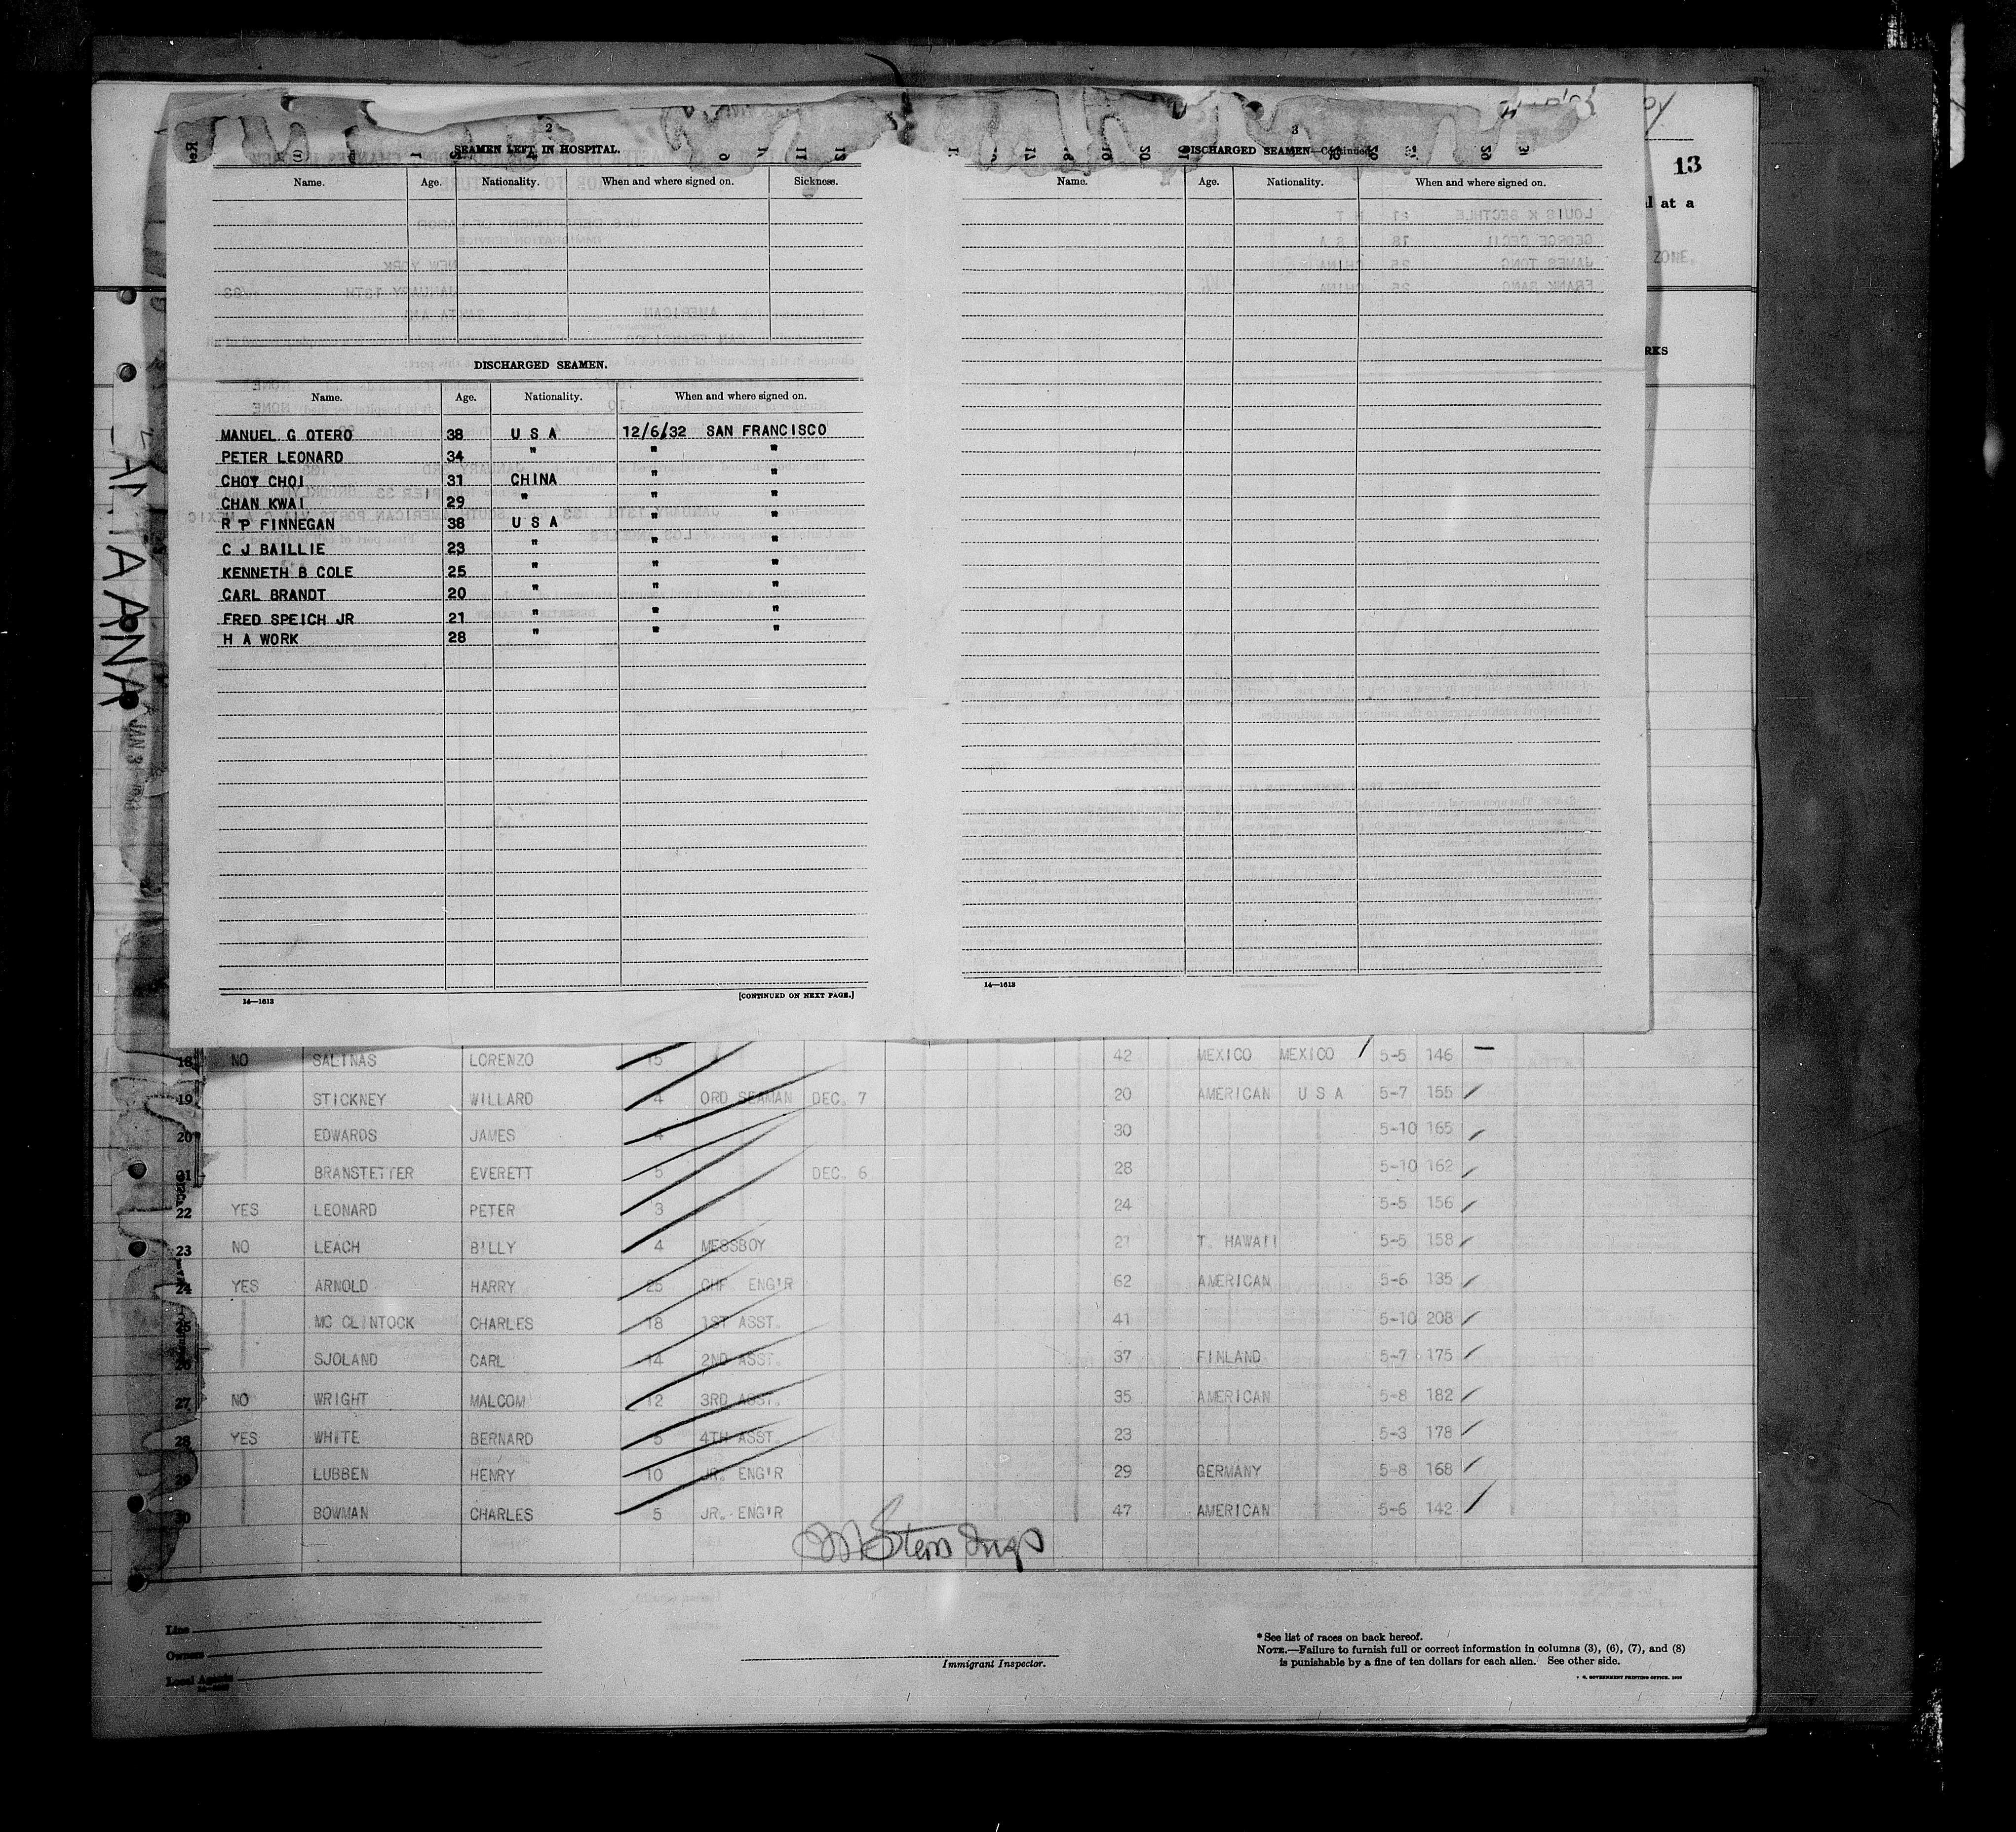 2
SEAMEN LEFT IN HOSPITAL.
Name. Age. Nationality. When and where signed on. Sickness.
DISCHARGED SEAMEN.
Name. Age. Nationality. When and where signed on.
MANUEL G OTERO 38 U S A 12/6/32 SAN FRANCISCO
PETER LEONARD 34 " " "
CHOY CHOI 31 CHINA " "
CHAN KWAI 29 " " "
R P FINNEGAN 38 U S A " "
C J BAILLIE 23 " " "
KENNETH B COLE 25 " " "
CARL BRANDT 20 " " "
FRED SPEICH JR 21 " " "
H A WORK 28 " " "
14—1613 [CONTINUED ON NEXT PAGE.]
3
DISCHARGED SEAMEN—Continued
Name. Age. Nationality. When and where signed on.
14—1613
13
at a
ZONE.
RKS
JAN 31
18 NO SALINAS LORENZO 15 42 MEXICO MEXICO 5-5 146
19 STICKNEY WILLARD 4 ORD SEAMAN DEC. 7 20 AMERICAN U S A 5-7 155
20 EDWARDS JAMES 4 30 5-10 165
21 BRANSTETTER EVERETT 5 DEC. 6 28 5-10 162
22 YES LEONARD PETER 3 24 5-5 156
23 NO LEACH BILLY 4 MESSBOY 21 T. HAWAII 5-5 158
24 YES ARNOLD HARRY 25 CHF ENG'R 62 AMERICAN 5-6 135
25 MC CLINTOCK CHARLES 18 1ST ASST. 41 5-10 208
26 SJOLAND CARL 14 2ND ASST. 37 FINLAND 5-7 175
27 NO WRIGHT MALCOM 12 3RD ASST. 35 AMERICAN 5-8 182
28 YES WHITE BERNARD 5 4TH ASST. 23 5-3 178
29 LUBBEN HENRY 10 JR. ENG'R 29 GERMANY 5-8 168
30 BOWMAN CHARLES 5 JR. ENG'R 47 AMERICAN 5-6 142
Line
Owners
Local Agents
Immigrant Inspector.
*See list of races on back hereof.
NOTE.—Failure to furnish full or correct information in columns (3), (6), (7), and (8)
is punishable by a fine of ten dollars for each alien. See other side.